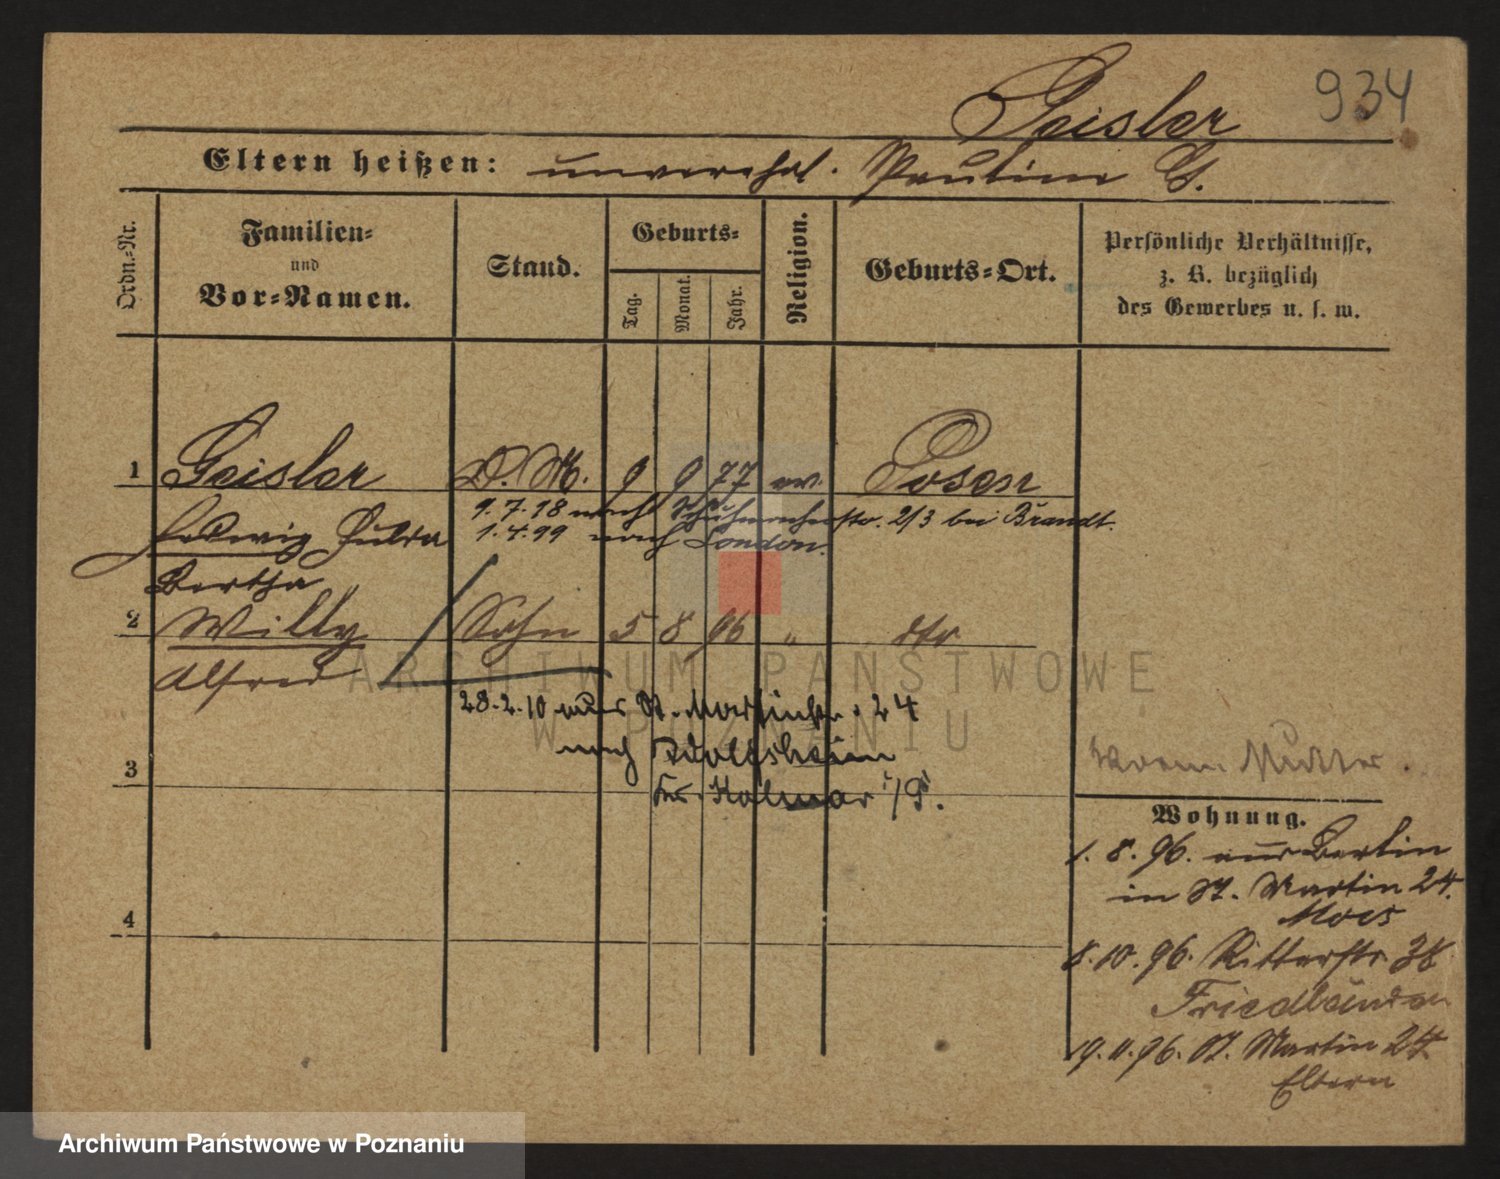 934
Geisler
Eltern heißen: unverehel. Pauline G.
Ordn.-Nr.
Familien-
und
Vor-Namen.
Stand.
Geburts-
Tag.
Monat.
Jahr.
Religion.
Geburts-Ort.
Persönliche Verhältnisse,
z. B. bezüglich
des Gewerbes u. s. w.
1 Geisler D. M. 9 9 77 ev. Posen
Hedwig Hulda
9.7.18 nach Schuhmacherstr. 2/3 bei Brandt.
1.4.99 nach London.
Bertha
2 Willy Sohn 5 8 96 " dto
Alfred
ARCHIWUM PAŃSTWOWE
W POZNANIU
28.2.10 aus St. Martinstr. 24
nach Adolfsheim
Kr. Kolmar i/P.
3
Mutter
Wohnung.
1. 8. 96. aus Berlin
in St. Martin 24.
8.10.96. Ritterstr. 38
Friedländer
19.11.96. St. Martin 24
Eltern
4
Archiwum Państwowe w Poznaniu